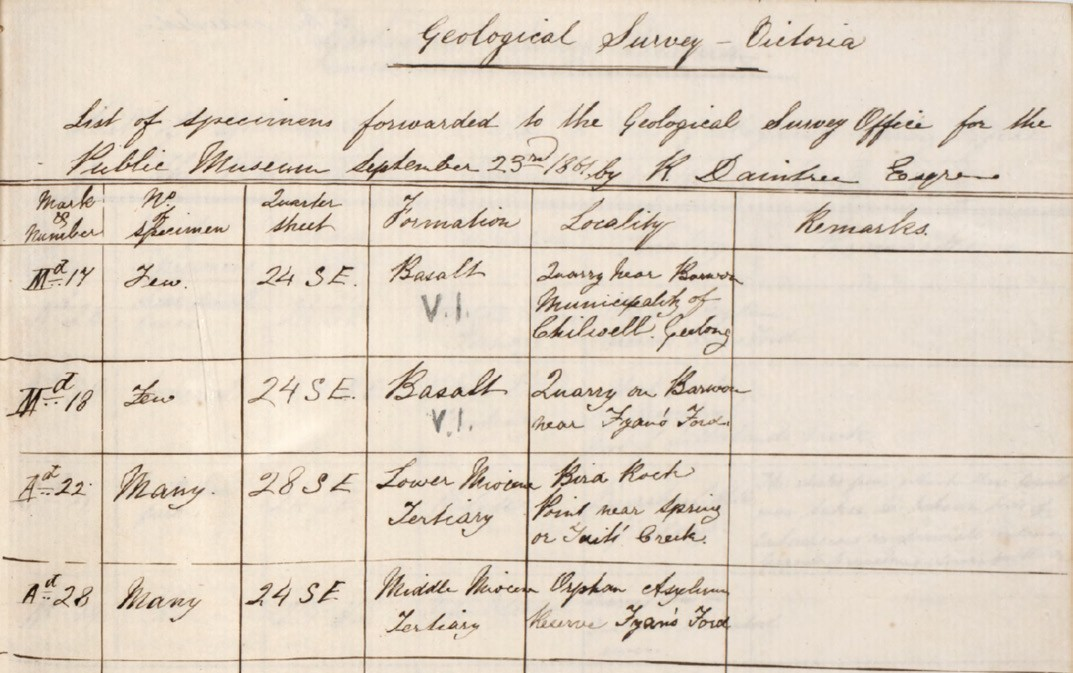 Geological Survey - Victoria
List of specimens forwarded to the Geological Survey Office for the
Public Museum September 23rd 1861 by R Daintree Esqre
Mark or Number No of specimen Quarter sheet Formation Locality Remarks.
Md 17 Few. 24 SE. Basalt Quarry near Barwon
V.I. Municipality of
Chilwell. Geelong
Md 18 Few 24 SE. Basalt Quarry on Barwon
V.I. near Fyans Ford.
Ad 22 Many. 28 SE Lower Miocene Bird Rock
Tertiary Point near Spring
or Creek.
Ad 28 Many 24 SE. Middle Miocene Orphan Asylum
Tertiary Reserve Fyans Ford